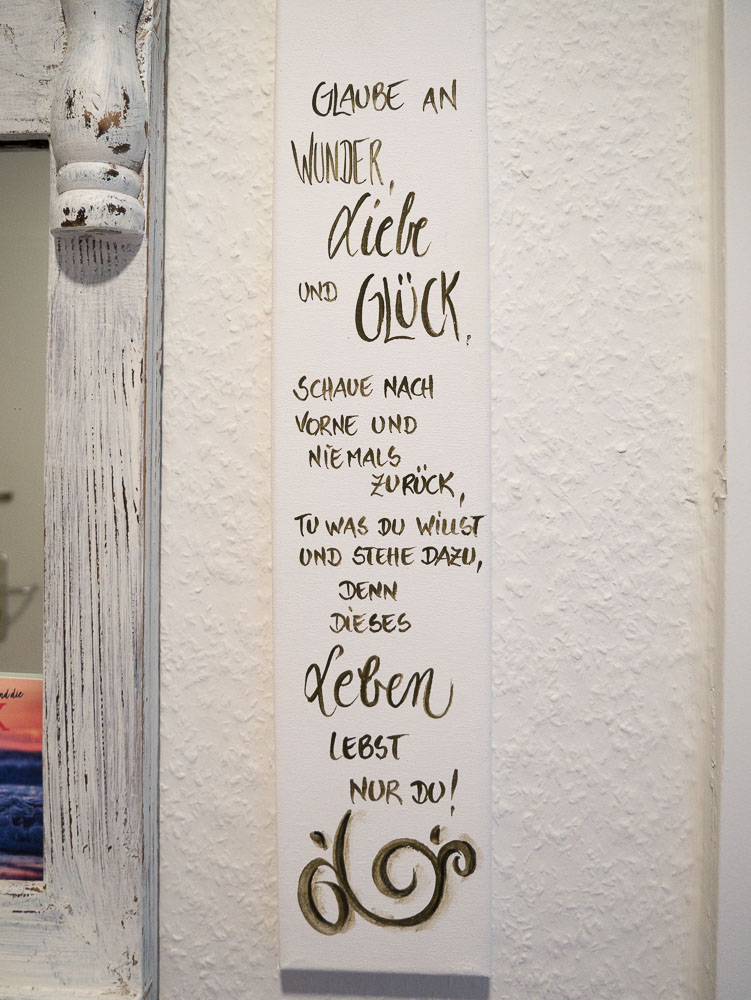 GLAUBE AN
WUNDER,
Liebe
UND GLÜCK.
SCHAUE NACH
VORNE UND
NIEMALS
ZURÜCK,
TU WAS DU WILLST
UND STEHE DAZU,
DENN
DIESES
Leben
LEBST
NUR DU!